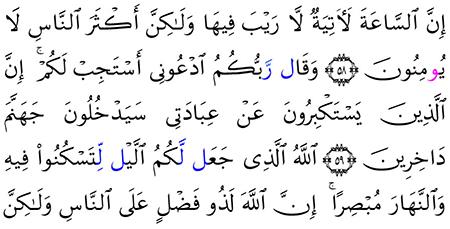 إِنَّ ٱلسَّاعَةَ لَأٓتِيَةٌ لَّا رَيْبَ فِيهَا وَلَٰكِنَّ أَكْثَرَ ٱلنَّاسِ لَا
يُومِنُونَ ۝٥٨ وَقَال رَّبُّكُمُ ٱدْعُونِىٓ أَسْتَجِبْ لَكُمْۚ إِنَّ
ٱلَّذِينَ يَسْتَكْبِرُونَ عَنْ عِبَادَتِى سَيَدْخُلُونَ جَهَنَّمَ
دَاخِرِينَ ۝٥٩ ٱللَّهُ ٱلَّذِى جَعَل لَّكُمُ ٱلَّيْل لِّتَسْكُنُوا۟ فِيهِ
وَٱلنَّهَارَ مُبْصِرًاۚ إِنَّ ٱللَّهَ لَذُو فَضْلٍ عَلَى ٱلنَّاسِ وَلَٰكِنَّ